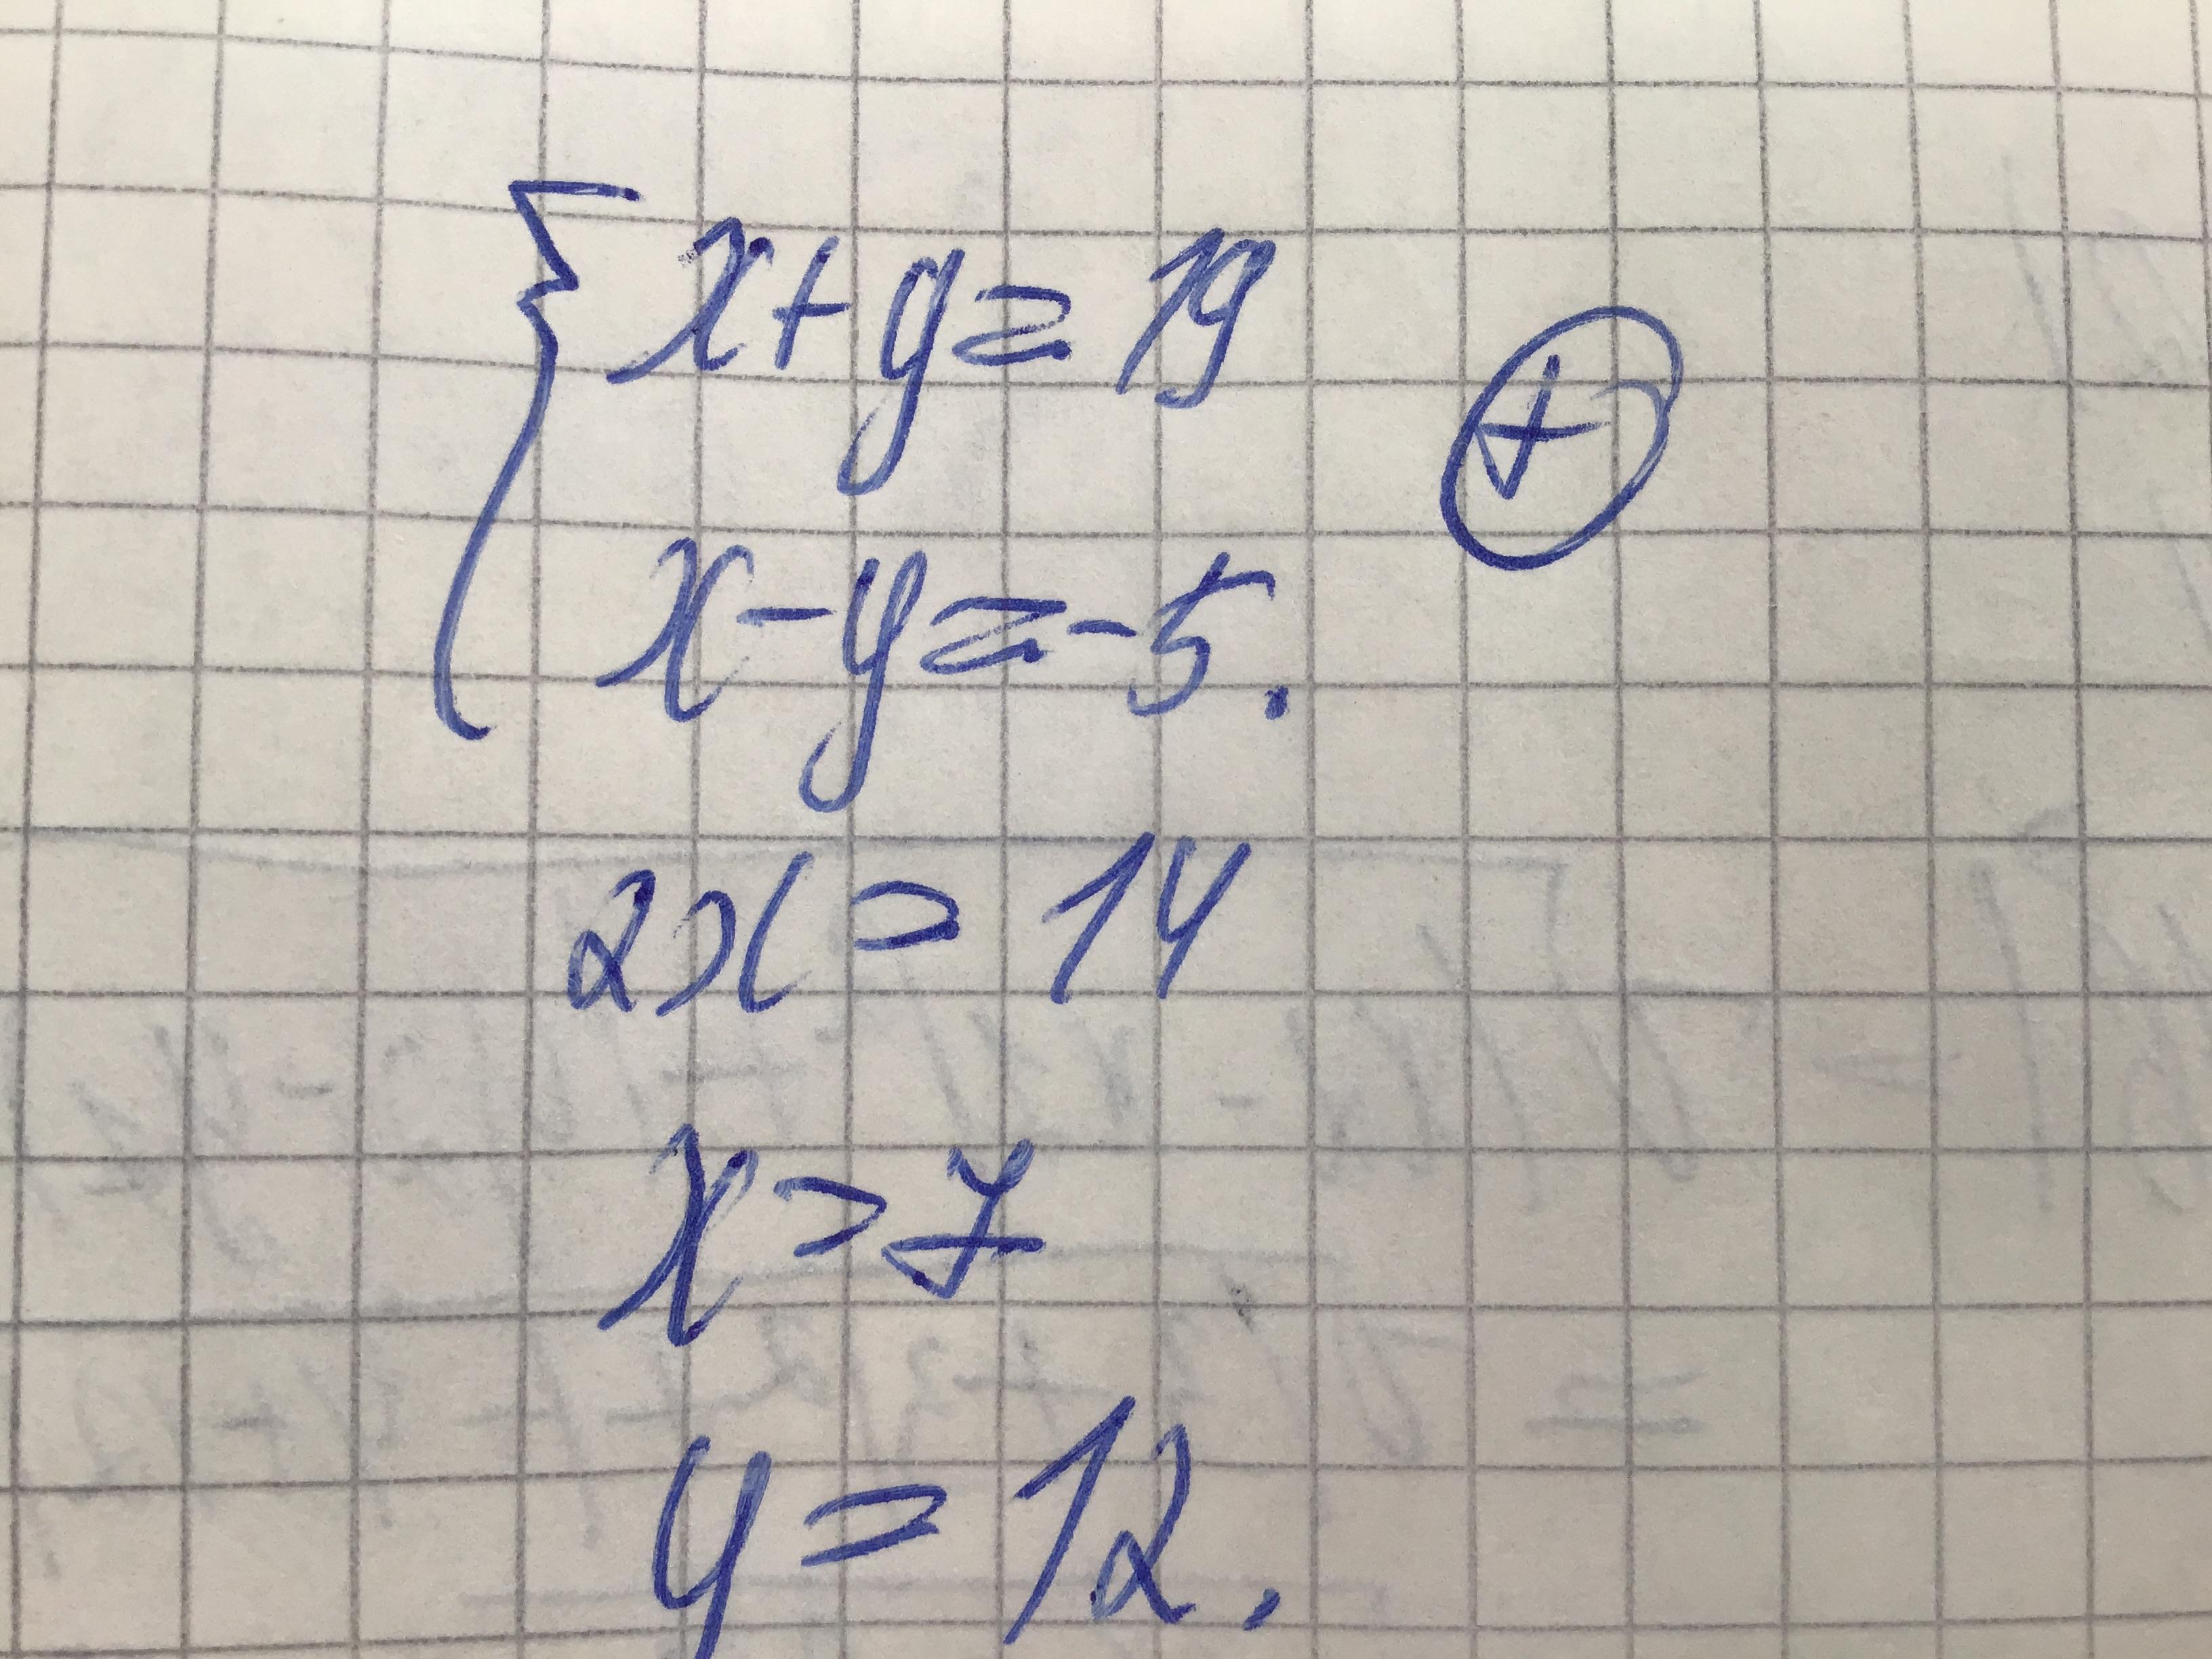 x+y=19
⊕
x-y=-5.
2x=14
x=7
y=12.